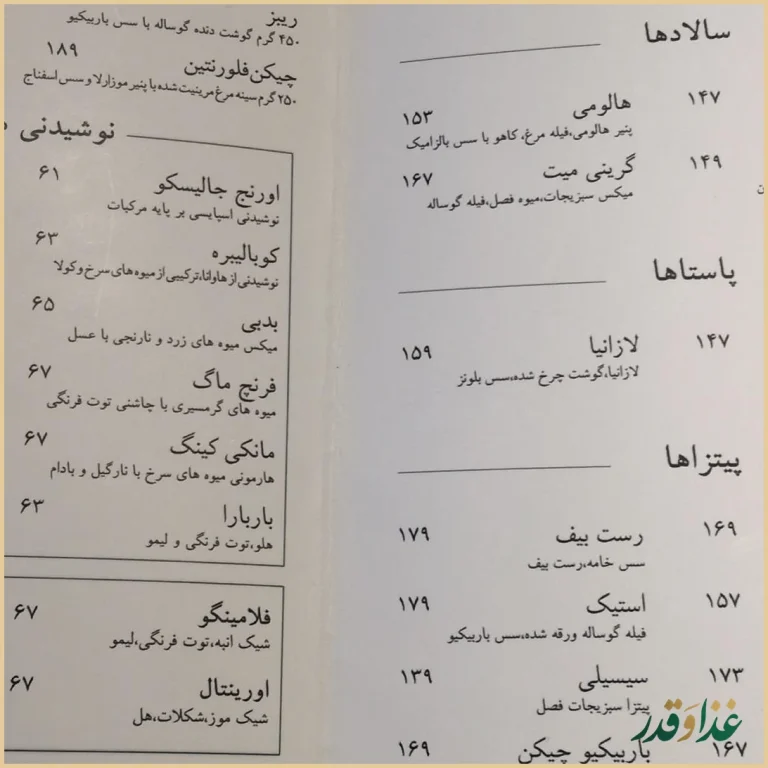 سالادها
۱۴۷
هالومی ۱۵۳
پنیر هالومی،فیله مرغ، کاهو با سس بالزامیک
۱۴۹
گرینی میت ۱۶۷
میکس سبزیجات،میوه فصل،فیله گوساله
پاستاها
۱۴۷
لازانیا ۱۵۹
لازانیا،گوشت چرخ شده،سس بلونز
پیتزاها
۱۶۹
رست بیف ۱۷۹
سس خامه،رست بیف
۱۵۷
استیک ۱۷۹
فیله گوساله ورقه شده،سس باربیکیو
۱۷۳
سیسیلی ۱۳۹
پیتزا سبزیجات فصل
۱۶۷
باربیکیو چیکن ۱۶۹
ریبز
۴۵۰ گرم گوشت دنده گوساله با سس باربیکیو
۱۸۹
چیکن فلورنتین
۲۵۰ گرم سینه مرغ مرینیت شده با پنیر موزارلا و سس اسفناج
نوشیدنی
اورنج جالیسکو ۶۱
نوشیدنی اسپایسی بر پایه مرکبات
کوبالیبره ۶۳
نوشیدنی از هاوانا،ترکیبی از میوه های سرخ و کولا
بدبی ۶۵
میکس میوه های زرد و نارنجی با عسل
فرنچ ماگ ۶۷
میوه های گرمسیری با چاشنی توت فرنگی
مانکی کینگ ۶۷
هارمونی میوه های سرخ با نارگیل و بادام
باربارا ۶۳
هلو،توت فرنگی و لیمو
فلامینگو ۶۷
شیک انبه،توت فرنگی،لیمو
اورینتال ۶۷
شیک موز،شکلات،هل
غذا و قدر